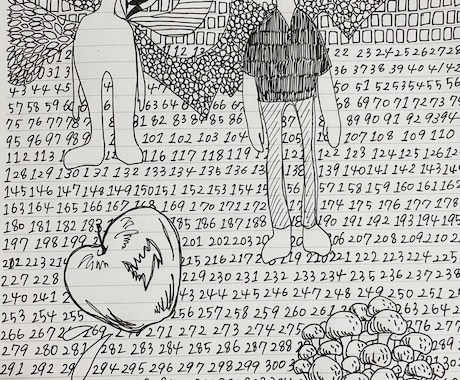 12 13 22 23 24 25 26 27 28
31 36 37 38 39 40 41 42
43 44 45 50 51 52 53 54 55 56
57 58 59 64 65 66 67 68 69 70 71 72 73
75 76 77 82 83 84 85 86 87 88 89 90 91 92 93 94
95 96 97 98 101 102 103 104 107 108 109 110
112 113 116 117 118 119 122 123 124 125 126
128 129 130 131 132 133 134 135 136 137 139 140 141 142 143 144
145 146 147 148 149 150 151 152 153 154 157 158 159 160 161 162
163 164 165 166 167 168 169 170 171 172 174 175 176 177 178
180 181 182 183 184 185 186 187 188 189 190 191 192 193 194 195
197 198 199 201 202 203 206 207 208 209 210
212 213 214 215 216 217 219 220 221 222 223 224 225
227 228 229 230 231 232 233 234 235 236 237 238
240 241 244 245 246 247 248 249 250 251
253 254 255 258 259 260 261
266 267 271 272 273 274
279 280 281 284 285 286 287
291 292 294 295 296 297 298 299 300